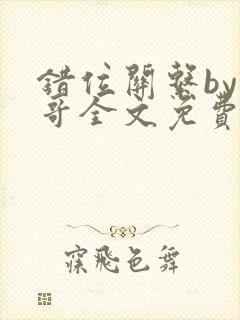 錯位關繫by
哥全文免費
寐飛色舞